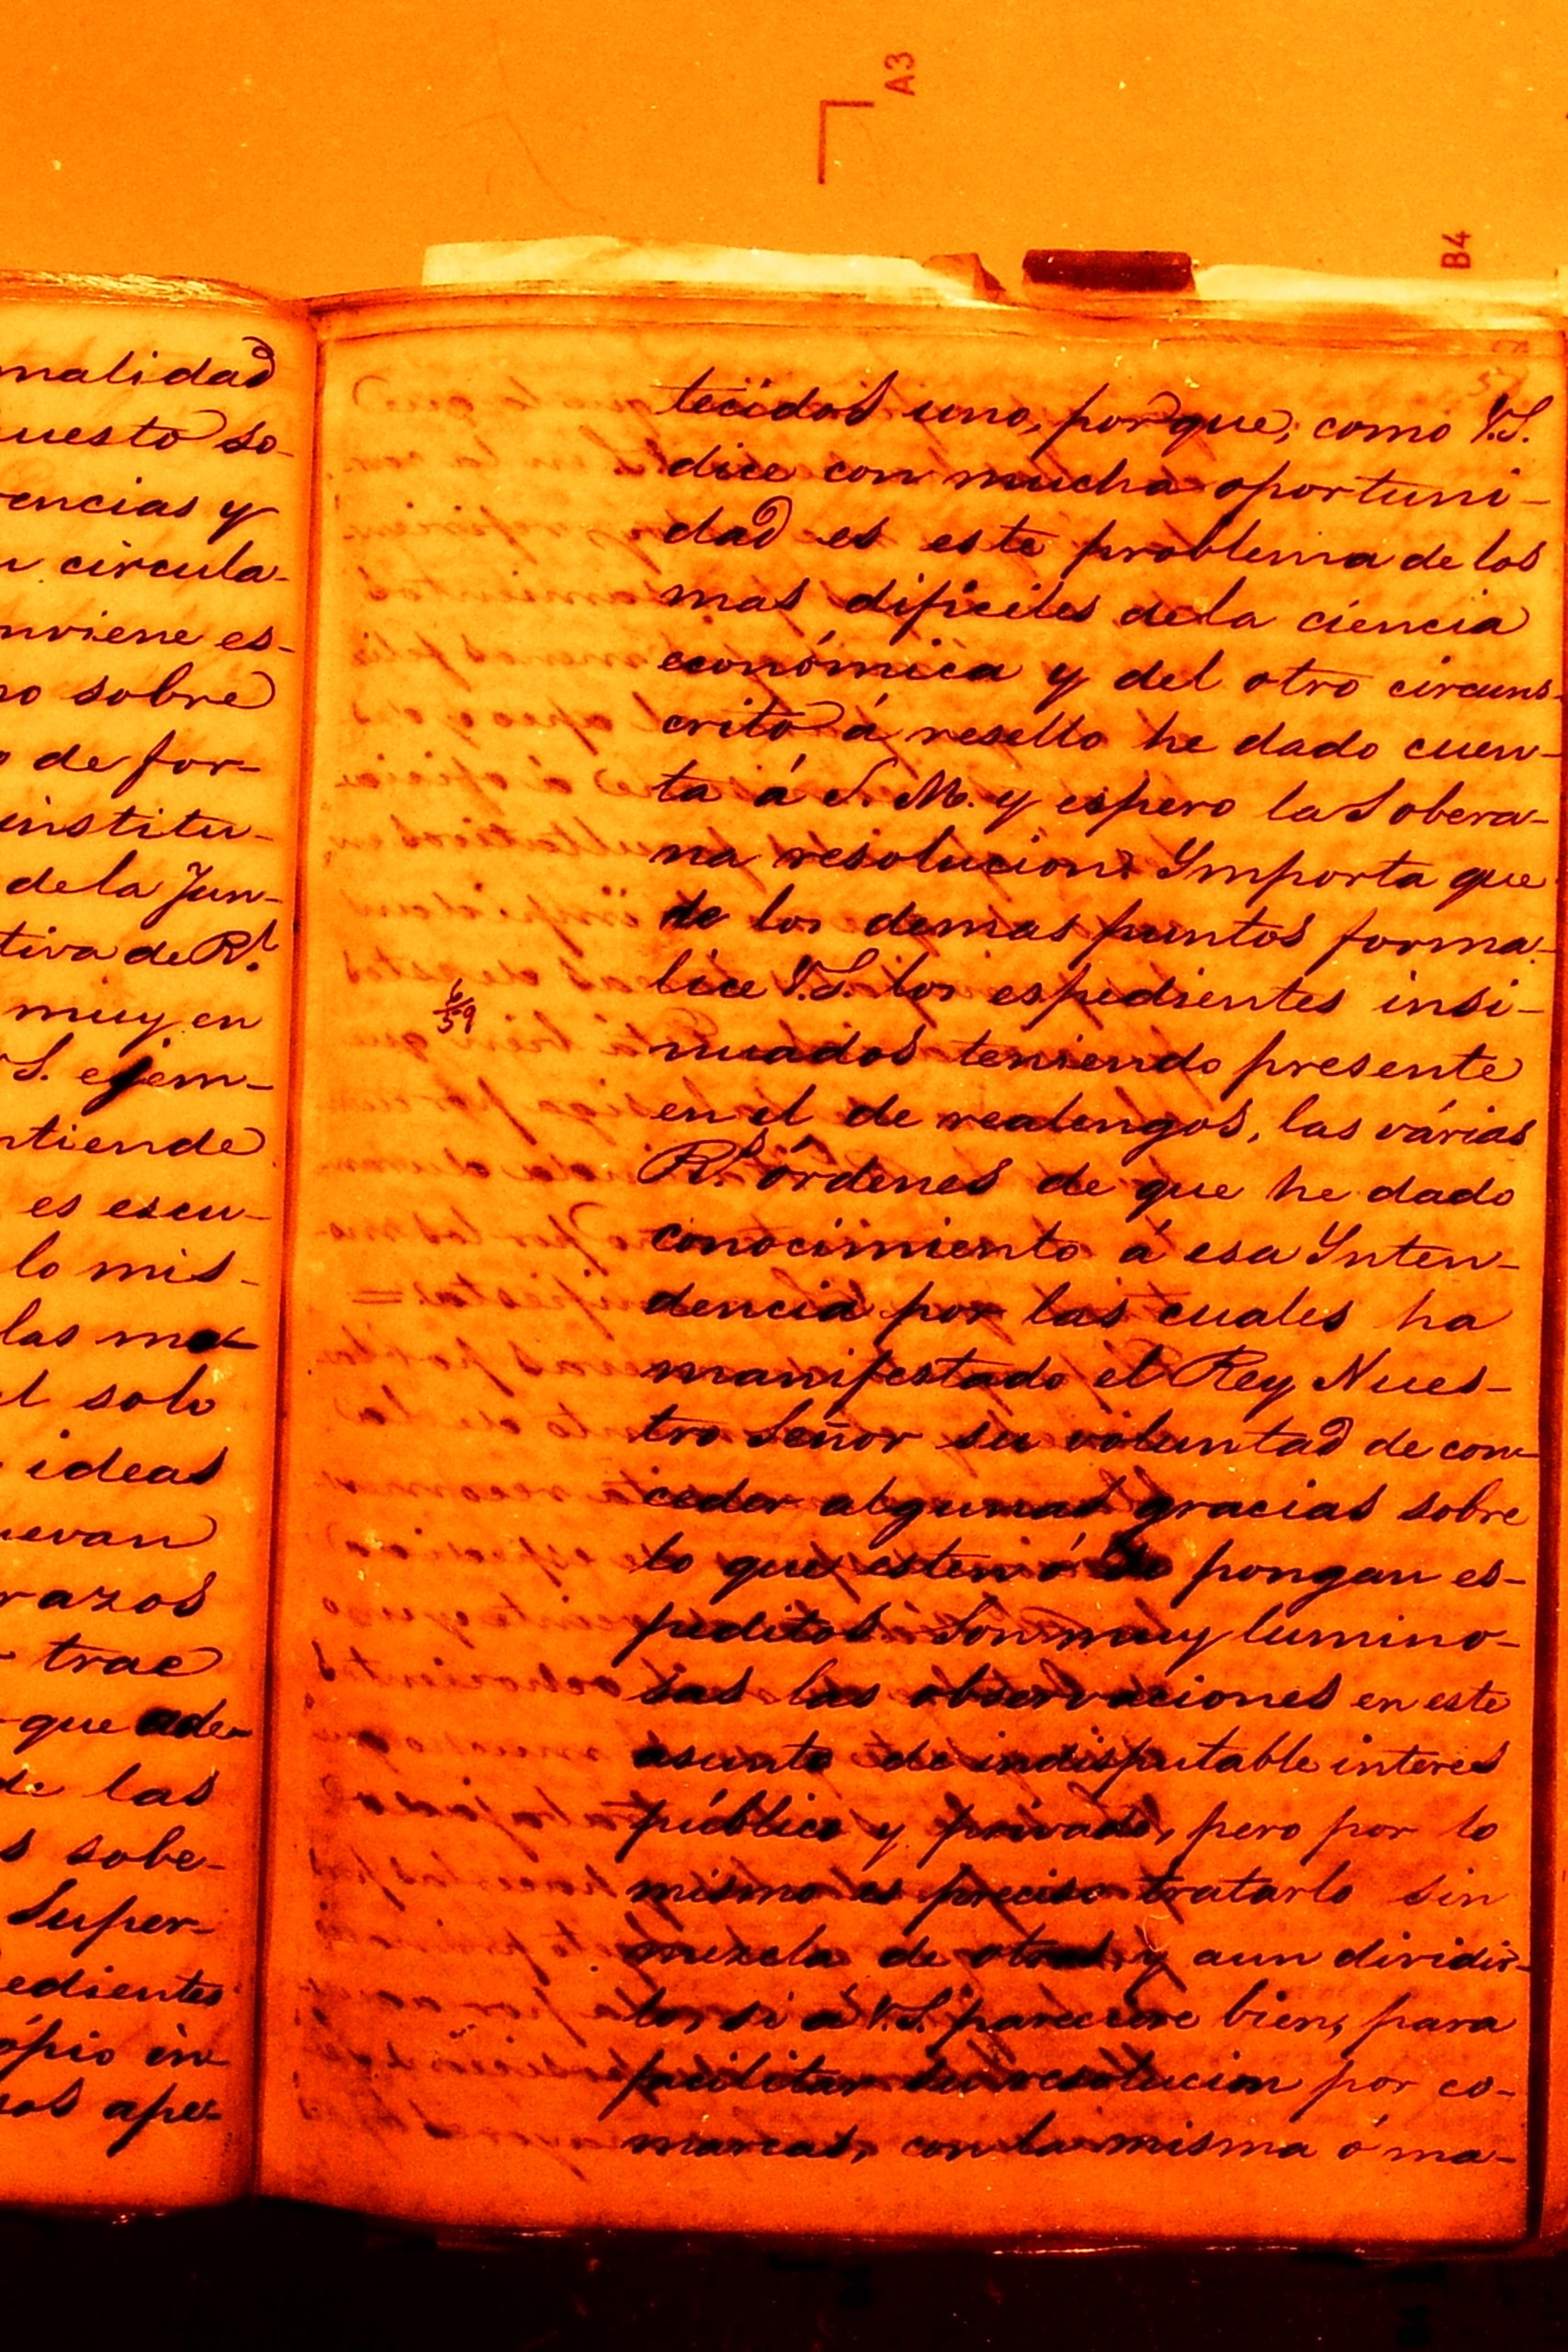 A3
B4
malidad
uesto so-
encias y
circula-
nviene es-
no sobre
de for-
institu-
de la Jun-
tiva de Rl.
muy en
S. ejem-
ntiende
es escu-
lo mis-
las ma-
l solo
ideas
uevan
razos
trae
que ade-
de las
s sobe-
Super-
edientes
ópio in-
sos ape-
tecidos uno, porque, como V.S.
dice con mucha oportuni-
dad es este problema de los
mas dificiles de la ciencia
económica y del otro circuns
crito á resello he dado cuen-
ta á S. M. y espero la Sobera-
na resolucion. Ymporta que
de los demas puntos forma-
lice V.S. los espedientes insi-
nuados teniendo presente
en el de realengos, las várias
Rs. órdenes de que he dado
conocimiento á esa Ynten-
dencia por las cuales ha
manifestado el Rey Nues-
tro Señor su voluntad de con-
ceder algunas gracias sobre
lo que esten ó se pongan es-
peditos. Son muy lumino-
sas las observaciones en este
asunto de indisputable interes
público y privado, pero por lo
mismo es preciso tratarlo sin
mezcla de otros, y aun dividir-
los si á V.S. pareciere bien, para
facilitar su resolucion por co-
marcas, con la misma ó ma-
6/59